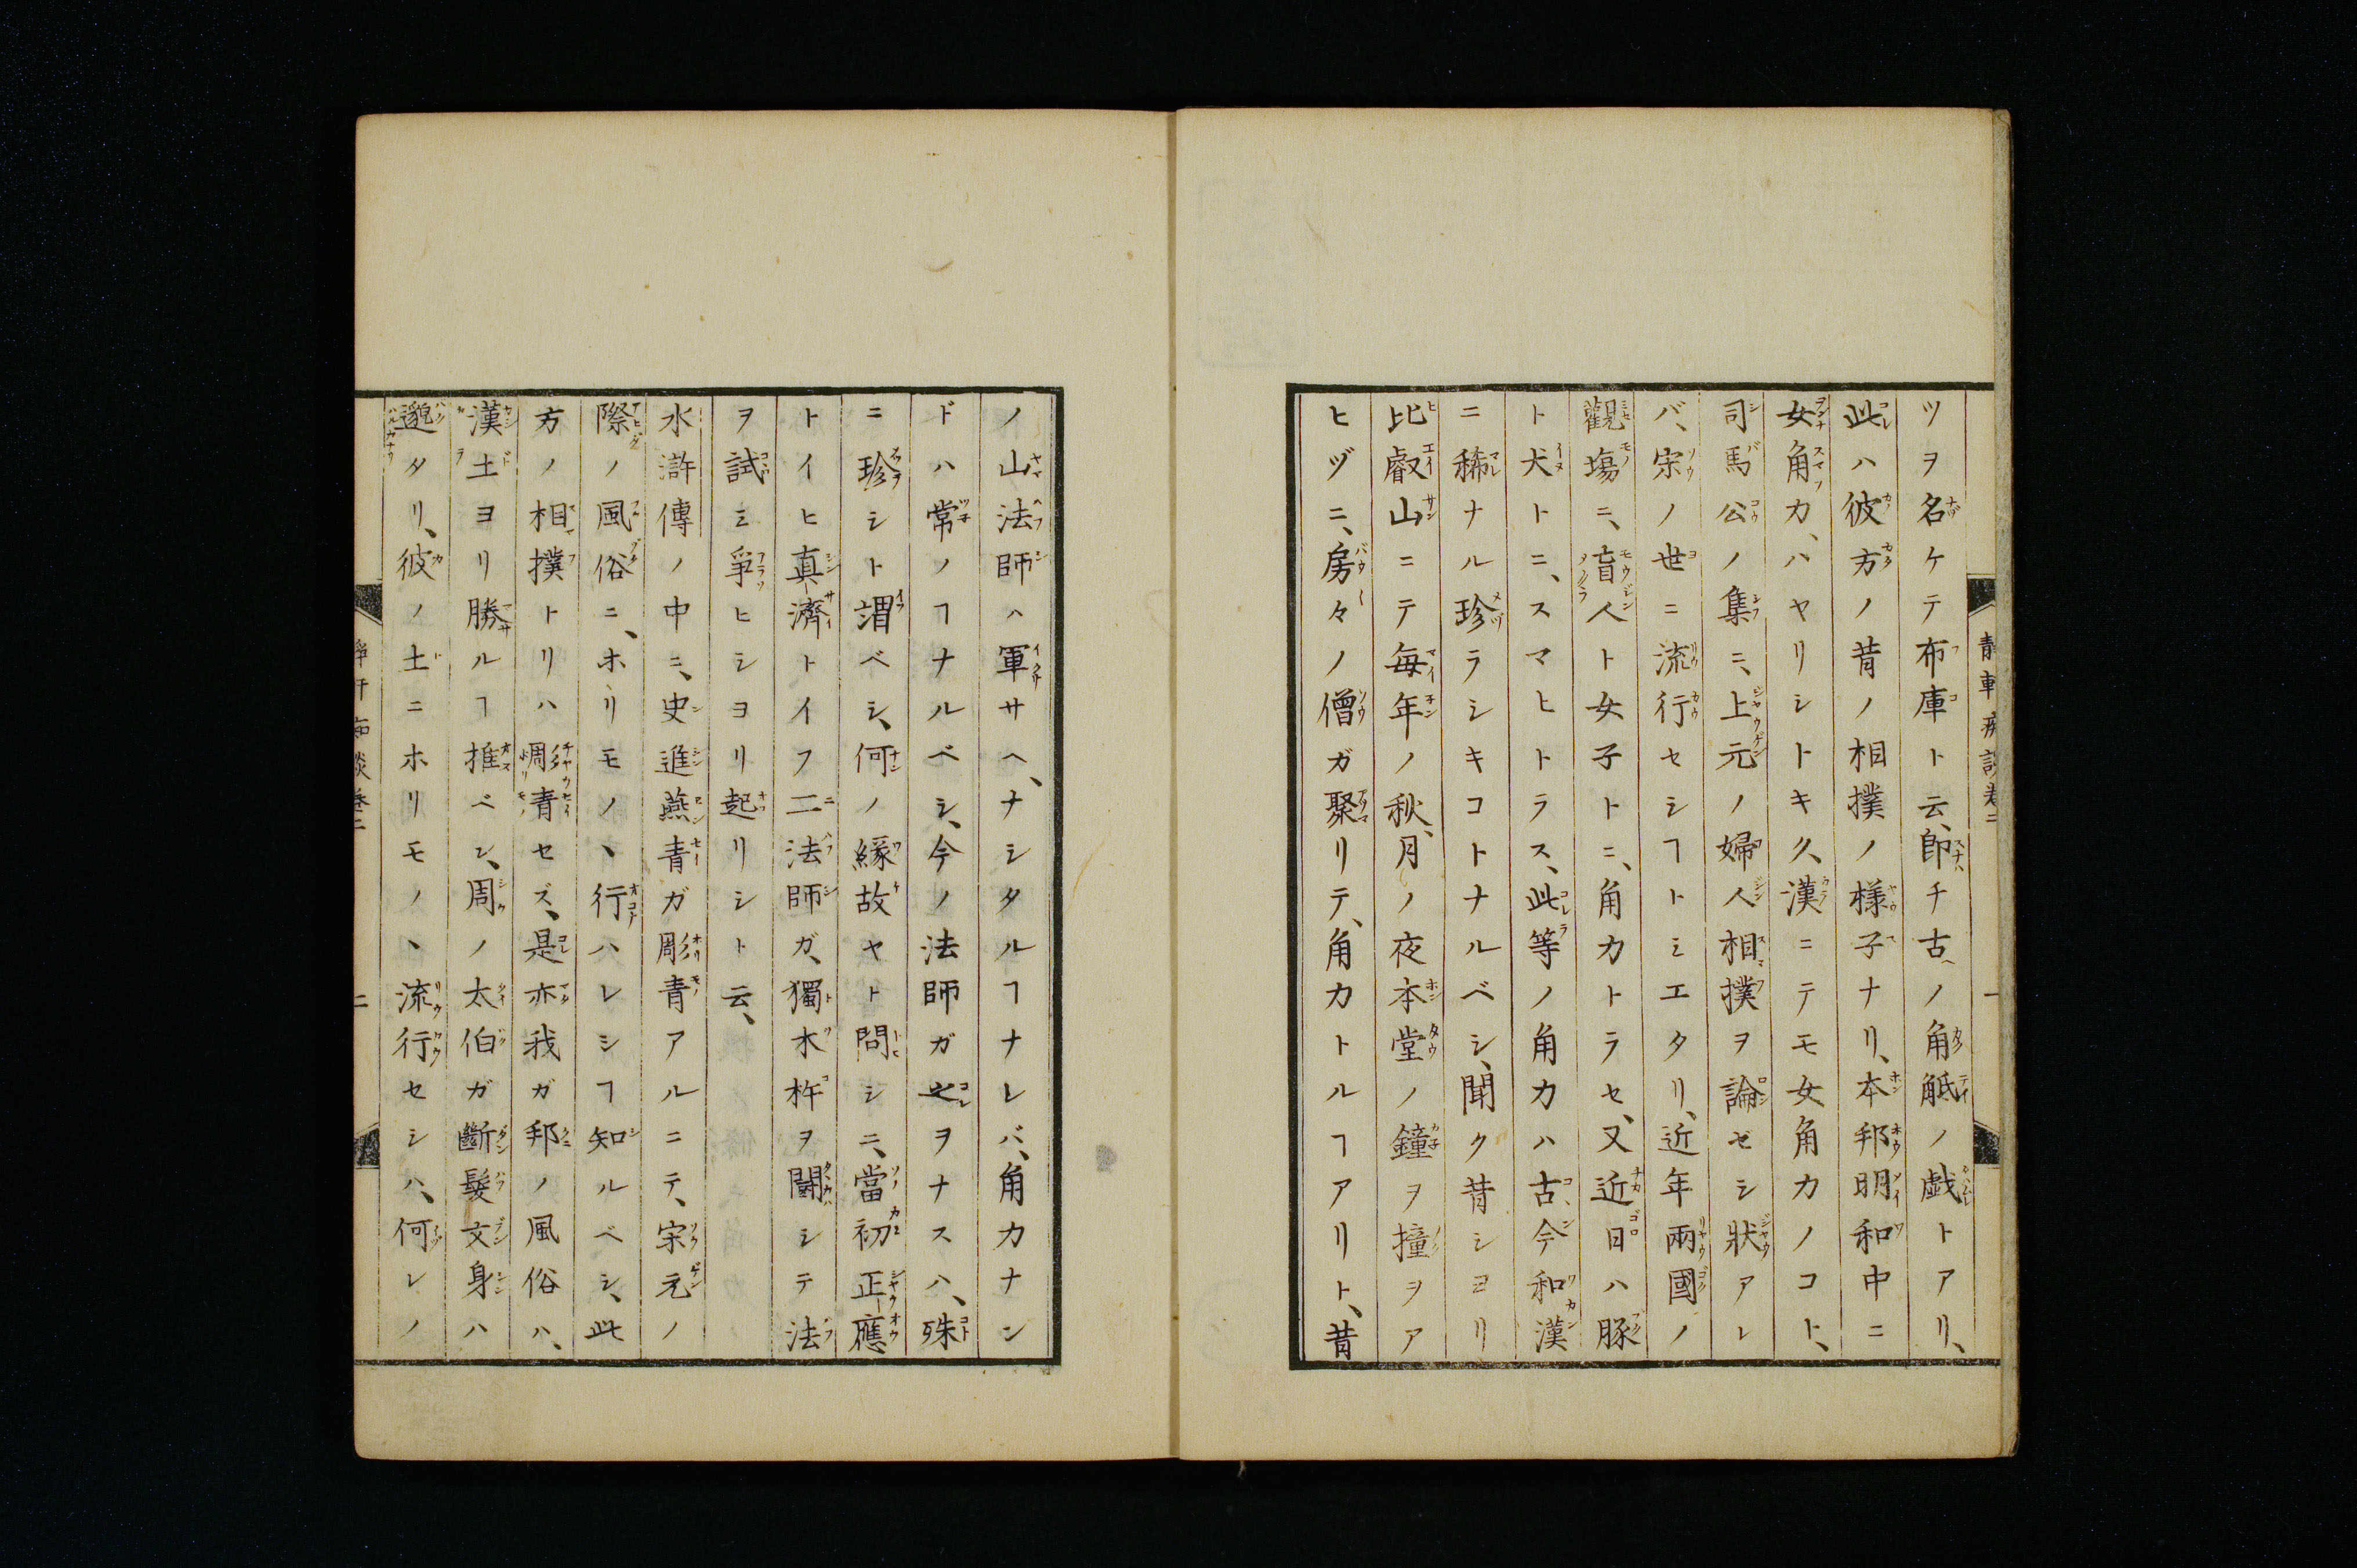 ツヲ名ケテ布庫ト云、即チ古ヘノ角觝ノ戯トアリ、
此ハ彼方ノ昔ノ相撲ノ様子ナリ、本邦明和中ニ
女角力、ハヤリシトキク、漢ニテモ女角力ノコト、
司馬公ノ集ニ、上元ノ婦人相撲ヲ論ゼシ狀アレ
バ、宋ノ世ニ流行セシヿトミエタリ、近年兩國ノ
觀塲ニ、盲人ト女子トニ、角力トラセ、又近日ハ豚
ト犬トニ、スマヒトラス、此等ノ角力ハ古今和漢
ニ稀ナル珍ラシキコトナルベシ、聞ク昔シヨリ
比叡山ニテ毎年ノ秋、月ノ夜本堂ノ鐘ヲ撞ヲア
ヒヅニ、房々ノ僧ガ聚リテ、角力トルヿアリト、昔
ノ山法師ハ軍サヘ、ナシタルヿナレバ、角力ナン
ドハ常ノヿナルベシ、今ノ法師ガ之ヲナスハ、殊
ニ珍シト謂ベシ、何ノ縁故ヤト問シニ、當初正應
トイヒ真濟トイフ二法師ガ、獨木杵ヲ鬪シテ法
ヲ試ミ爭ヒシヨリ起リシト云、
水滸傳ノ中ニ、史進燕青ガ彫青アルニテ、宋元ノ
際ノ風俗ニ、ホリモノヽ行ハレシヿ知ルベシ、此
方ノ相撲トリハ彫青セズ、是亦我ガ邦ノ風俗ハ、
漢土ヨリ勝ルヿ推ベシ、周ノ太伯ガ斷髮文身ハ
邈タリ、彼ノ土ニホリモノヽ流行セシハ、何レノ